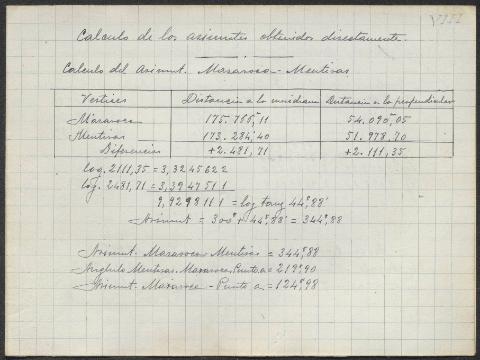 VIII
Calculo de los asimutes obtenidos directamente.
Calculo del Asimut. Mazaroca - Mentiras
Vertices Distancia a la meridiana Distancia a la perpendicular
Mazaroca 175.766,11 54.090,05
Mentiras 173.284,40 51.978,70
Diferencias +2.481,71 +2.111,35
log. 2111,35 = 3,3245622
log. 2481,71 = 3,3947511
9,9298111 = log tang 44º,88
Asimut = 300º + 44º,88' = 344º,88
Asimut. Mazaroca Mentiras = 344º,88
Angulo Mentiras. Mazaroca. Punto a = 219º,90
Asimut. Mazaroca - Punto a. = 124º,98